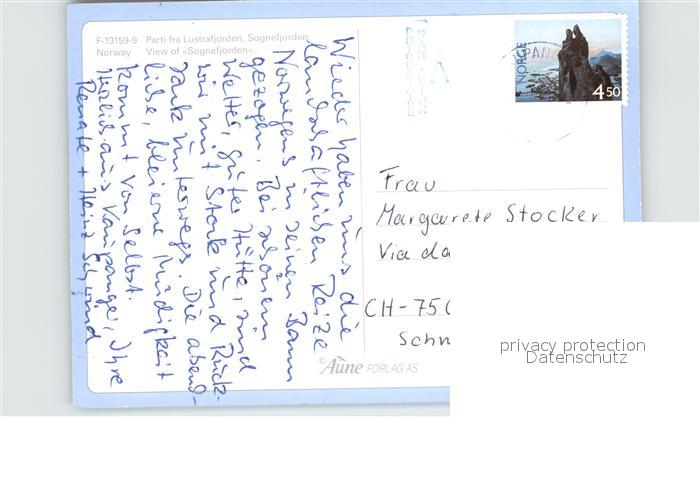 F-13159-9 Parti fra Lustrafjorden, Sognefjorden
Norway View of «Sognefjorden».
NORGE
4 50
Wieder haben uns die
landschaftlichen Reize
Norwegens in seinen Bann
gezogen. Bei schönem
Wetter, guter Hütte, sind
wir mit Stock und Rück-
sack unterwegs. Die abend-
liche, bleierne Müdigkeit
kommt von selbst.
Herzlich aus Kaupanger, Ihre
Renate + Heinz Schmid
Frau
Margarete Stocker
Via da
CH-750
Schw
© Aune FORLAG AS
privacy protection
Datenschutz